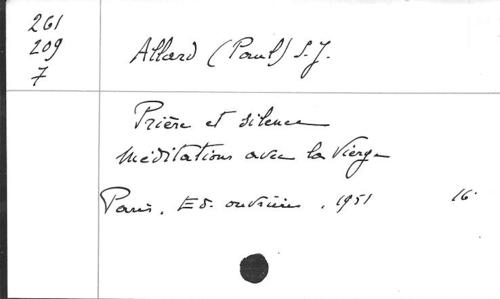 261
209
7
Allard (Paul) S.J.
Prière et silence
Méditations avec la Vierge
Paris, Ed. ouvrières, 1951 16°